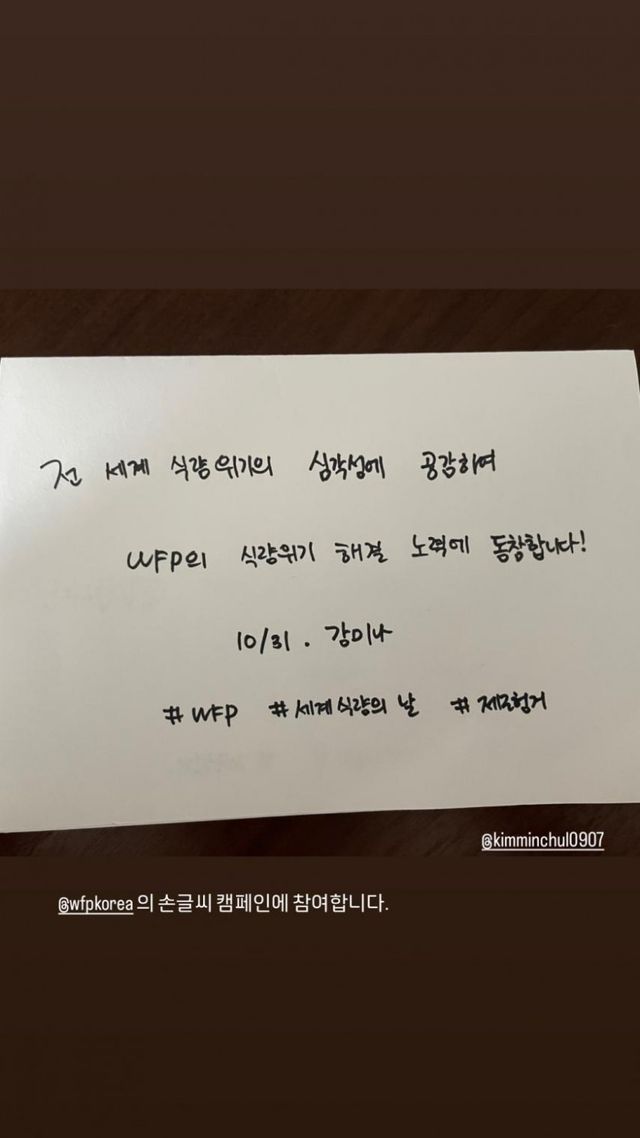 전 세계 식량위기의 심각성에 공감하여
WFP의 식량위기 해결 노력에 동참합니다!
10/31. 강미나
#WFP #세계식량의 날 #제로헝거
@kimminchul0907
@wfpkorea 의 손글씨 캠페인에 참여합니다.